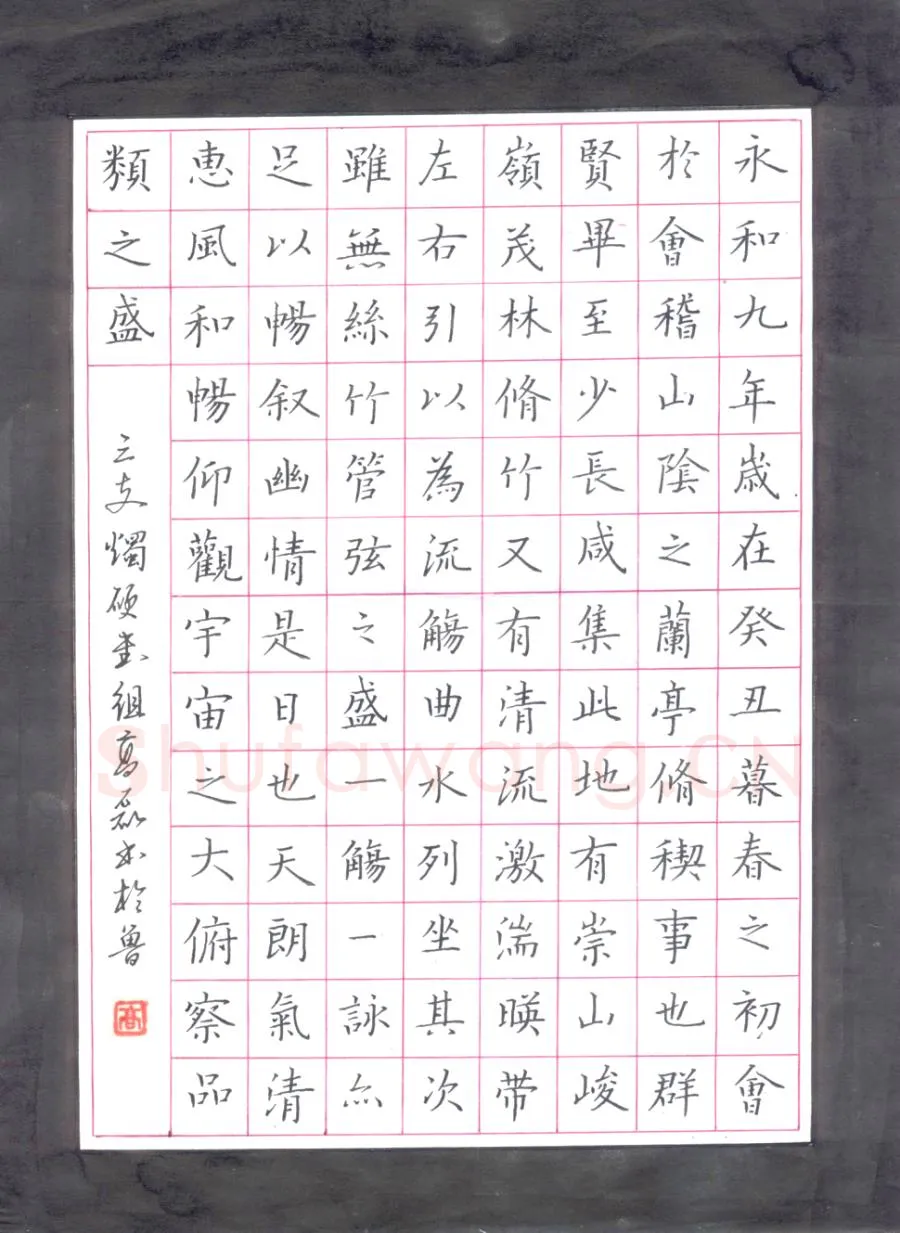 永和九年歲在癸丑暮春之初會
於會稽山陰之蘭亭脩稧事也群
賢畢至少長咸集此地有崇山峻
嶺茂林脩竹又有清流激湍暎帶
左右引以為流觴曲水列坐其次
雖無絲竹管弦之盛一觴一詠亦
足以暢叙幽情是日也天朗氣清
惠風和暢仰觀宇宙之大俯察品
類之盛
三支燭硬書組高磊書於魯
高
Shufawang.CN